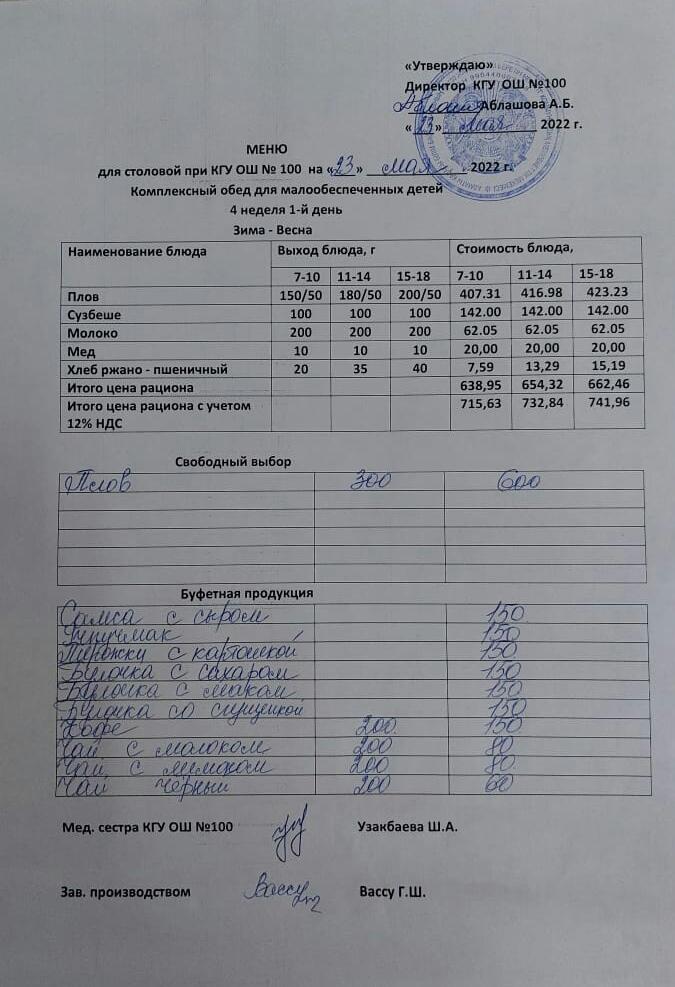 «Утверждаю»
Директор КГУ ОШ №100
Аблашова А.Б.
«23» мая 2022 г.
МЕНЮ
для столовой при КГУ ОШ № 100 на «23» мая 2022 г.
Комплексный обед для малообеспеченных детей
4 неделя 1-й день
Зима - Весна
Наименование блюда Выход блюда, г Стоимость блюда,
7-10 11-14 15-18 7-10 11-14 15-18
Плов 150/50 180/50 200/50 407.31 416.98 423.23
Сузбеше 100 100 100 142.00 142.00 142.00
Молоко 200 200 200 62.05 62.05 62.05
Мед 10 10 10 20,00 20,00 20,00
Хлеб ржано - пшеничный 20 35 40 7,59 13,29 15,19
Итого цена рациона 638,95 654,32 662,46
Итого цена рациона с учетом 715,63 732,84 741,96
12% НДС
Свободный выбор
Плов 300 600
Буфетная продукция
Самса с сыром 150
Учпучмак 150
Пирожки с картошкой 150
Булочка с сахаром 150
Булочка с маком 150
Булочка со сгущенкой 150
Кофе 200 150
Чай с молоком 200 80
Чай с лимоном 200 80
Чай черный 200 60
Мед. сестра КГУ ОШ №100 Узакбаева Ш.А.
Зав. производством Вассу Вассу Г.Ш.